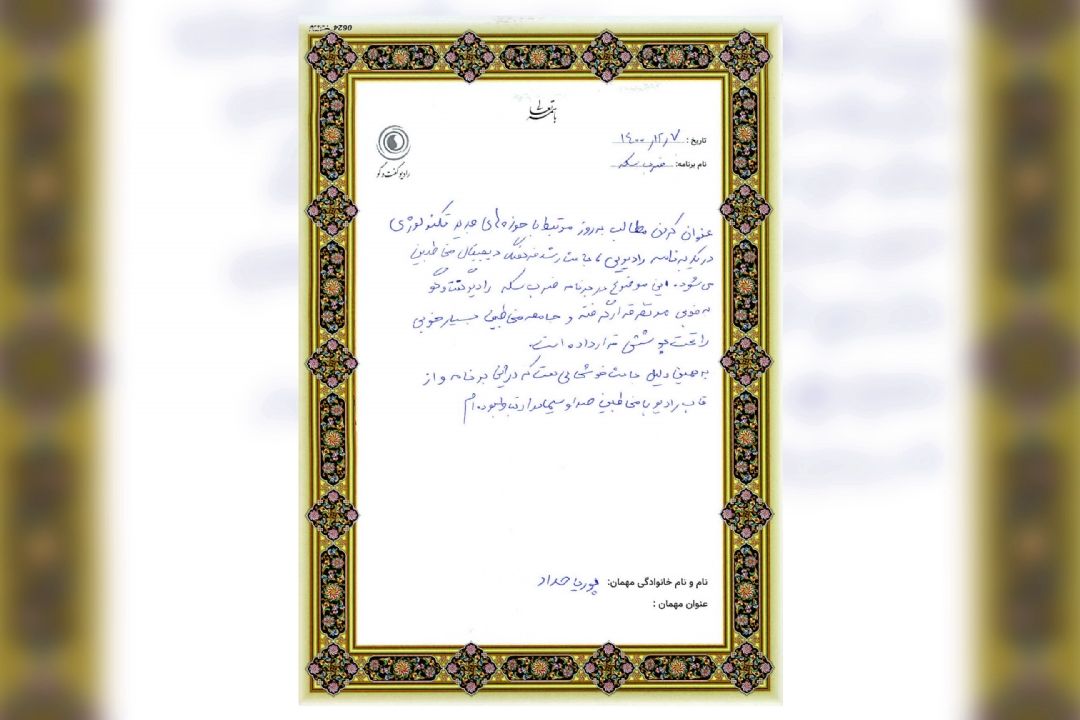 باسمه تعالی
تاریخ: ۱۴۰۰/۱۲/۷
نام برنامه: ضرب سکه
رادیو گفت و گو
عنوان کردن مطالب به روز مرتبط با حوزه‌های جدید تکنولوژی
در یک برنامه رادیویی باعث رشد فرهنگ دیجیتال مخاطبین
می‌شود. این موضوع در برنامه ضرب سکه رادیو گفت و گو
به خوبی مد نظر قرار گرفته و جامعه مخاطبین بسیار خوبی
را تحت پوشش قرار داده است.
به همین دلیل باعث خوشحالی ست که در این برنامه و از
قاب رادیو با مخاطبین صدا و سیما در ارتباط بوده‌ام
نام و نام خانوادگی مهمان: پوریا حداد
عنوان مهمان :
0624